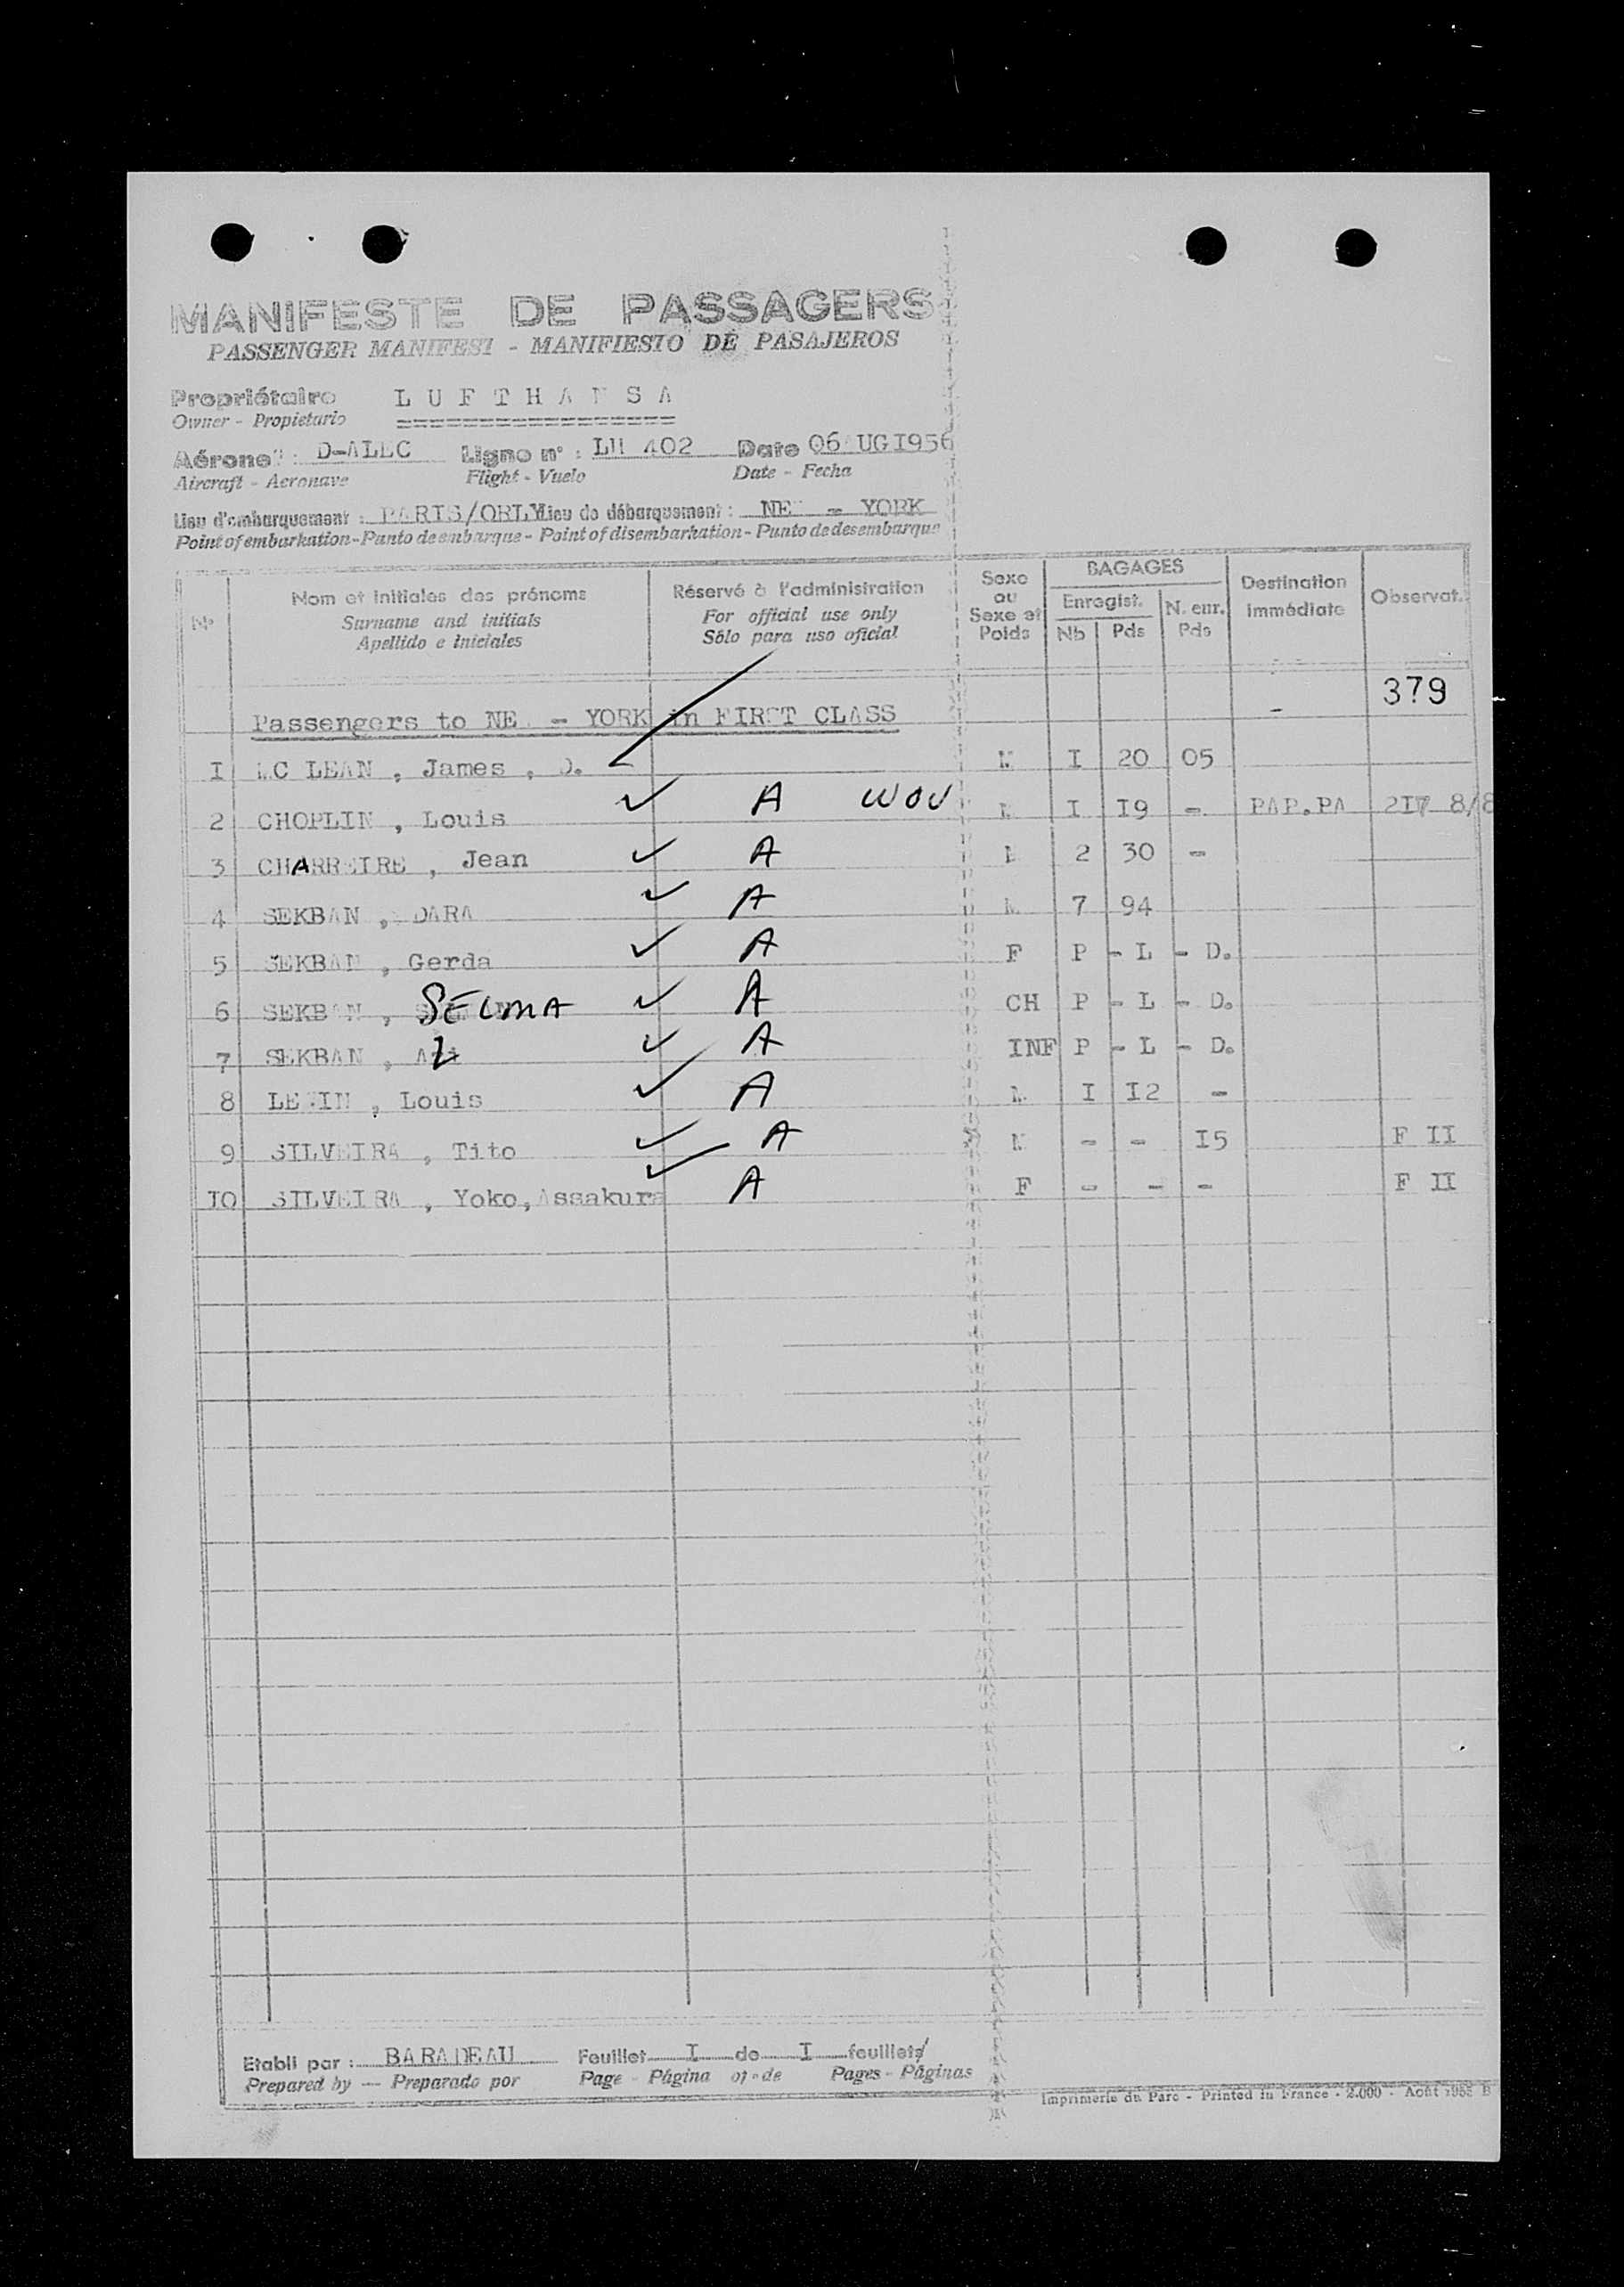 MANIFESTE DE PASSAGERS
PASSENGER MANIFEST - MANIFIESTO DE PASAJEROS
Propriétaire LUFTHANSA
Owner - Propietario
Aéronef : D-ALEC Ligne n° : LH 402 Date 06 AUG 1956
Aircraft - Aeronave Flight - Vuelo Date - Fecha
Lieu d'embarquement : PARIS/ORLY Lieu de débarquement : NEW - YORK
Point of embarkation - Punto de embarque - Point of disembarkation - Punto de desembarque
BAGAGES
Nº Nom et initiales des prénoms Réservé à l'administration Sexe ou Sexe et Poids Enregist. N. enr. Destination immédiate Observat.
Surname and initials For official use only Nb Pds Pds
Apellido e iniciales Sólo para uso oficial
379
Passengers to NEW - YORK in FIRST CLASS
I MC LEAN , James , D. M I 20 05
2 CHOPLIN , Louis A WOV M I I9 - PAP.PA 2I7 8/8
3 CHARREIRE , Jean A M 2 30 -
4 SEKBAN , DARA A M 7 94
5 SEKBAN , Gerda A F P - L - D.
6 SEKBAN , SELMA A CH P - L - D.
7 SEKBAN , A INF P - L - D.
8 LEWIN , Louis A M I I2 -
9 SILVEIRA , Tito A M - - I5 F II
IO SILVEIRA , Yoko, Assakura A F - - - F II
Etabli par : BARADEAU Feuillet I de I feuillets
Prepared by — Preparado por Page - Página of - de Pages - Páginas
Imprimerie du Parc - Printed in France - 2.000 - Août